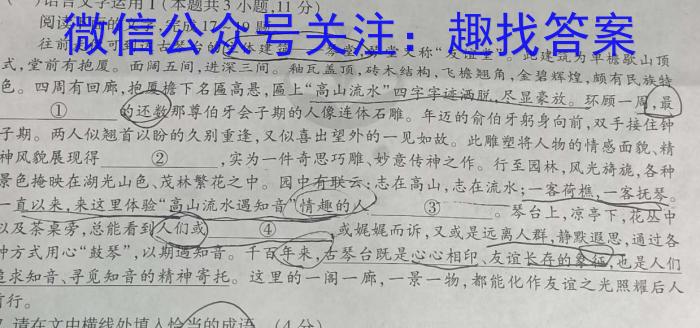 ）语言文字运用Ⅰ（本题共3小题,11分）
阅读下面的文字,完成17～19题。
微信公众号关注：趣找答案
往前走便可到达古琴台的主体建筑——琴堂,琴堂又称“友谊堂”。此建筑为单檐歇山顶
式,堂前有抱厦。面阔五间,进深三间。釉瓦盖顶,砖木结构,飞檐翘角,金碧辉煌,颇有民族特
色。四周有回廊,抱厦檐下名匾高悬,匾上“高山流水”四字字迹洒脱,尽显豪放。环顾一周,最
①的还数那尊伯牙会子期的人像连体石雕。年迈的俞伯牙躬身向前,双手接住钟
子期。两人似翘首以盼的久别重逢,又似喜出望外的一见如故。此雕塑将人物的情感面貌、精
神风貌展现得②,实为一件奇思巧雕、妙意传神之作。行至园林,风光旖旎,各种
景色掩映在湖光山色、茂林繁花之中。园中有联云:志在高山,志在流水;一客荷樵,一客抚琴。
一直以来,来这里体验“高山流水遇知音”情趣的人③。琴台上,凉亭下,花丛中
以及茶桌旁,总能看到人们或④,或娓娓而诉,又或是远离人群,静默遐思,通过各
种方式用心“鼓琴”,以期遇知音。千百年来,古琴台既是心心相印、友谊长存的象征,也是人们
追求知音、寻觅知音的精神寄托。这里的一阁一廊,一景一物,都能化作友谊之光照耀后人
前行。
请在文中横线处填入恰当的成语。(4分)